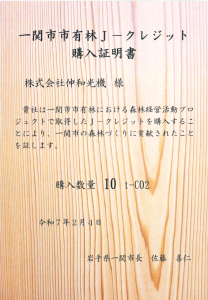 一関市市有林Ｊ－クレジット
購入証明書
株式会社伸和光機 様
貴社は一関市市有林における森林経営活動プロ
ジェクトで取得したＪ－クレジットを購入するこ
とにより、一関市の森林づくりに貢献されたこと
を証します。
購入数量 10 t-CO2
令和７年２月４日
岩手県一関市長 佐藤 善仁